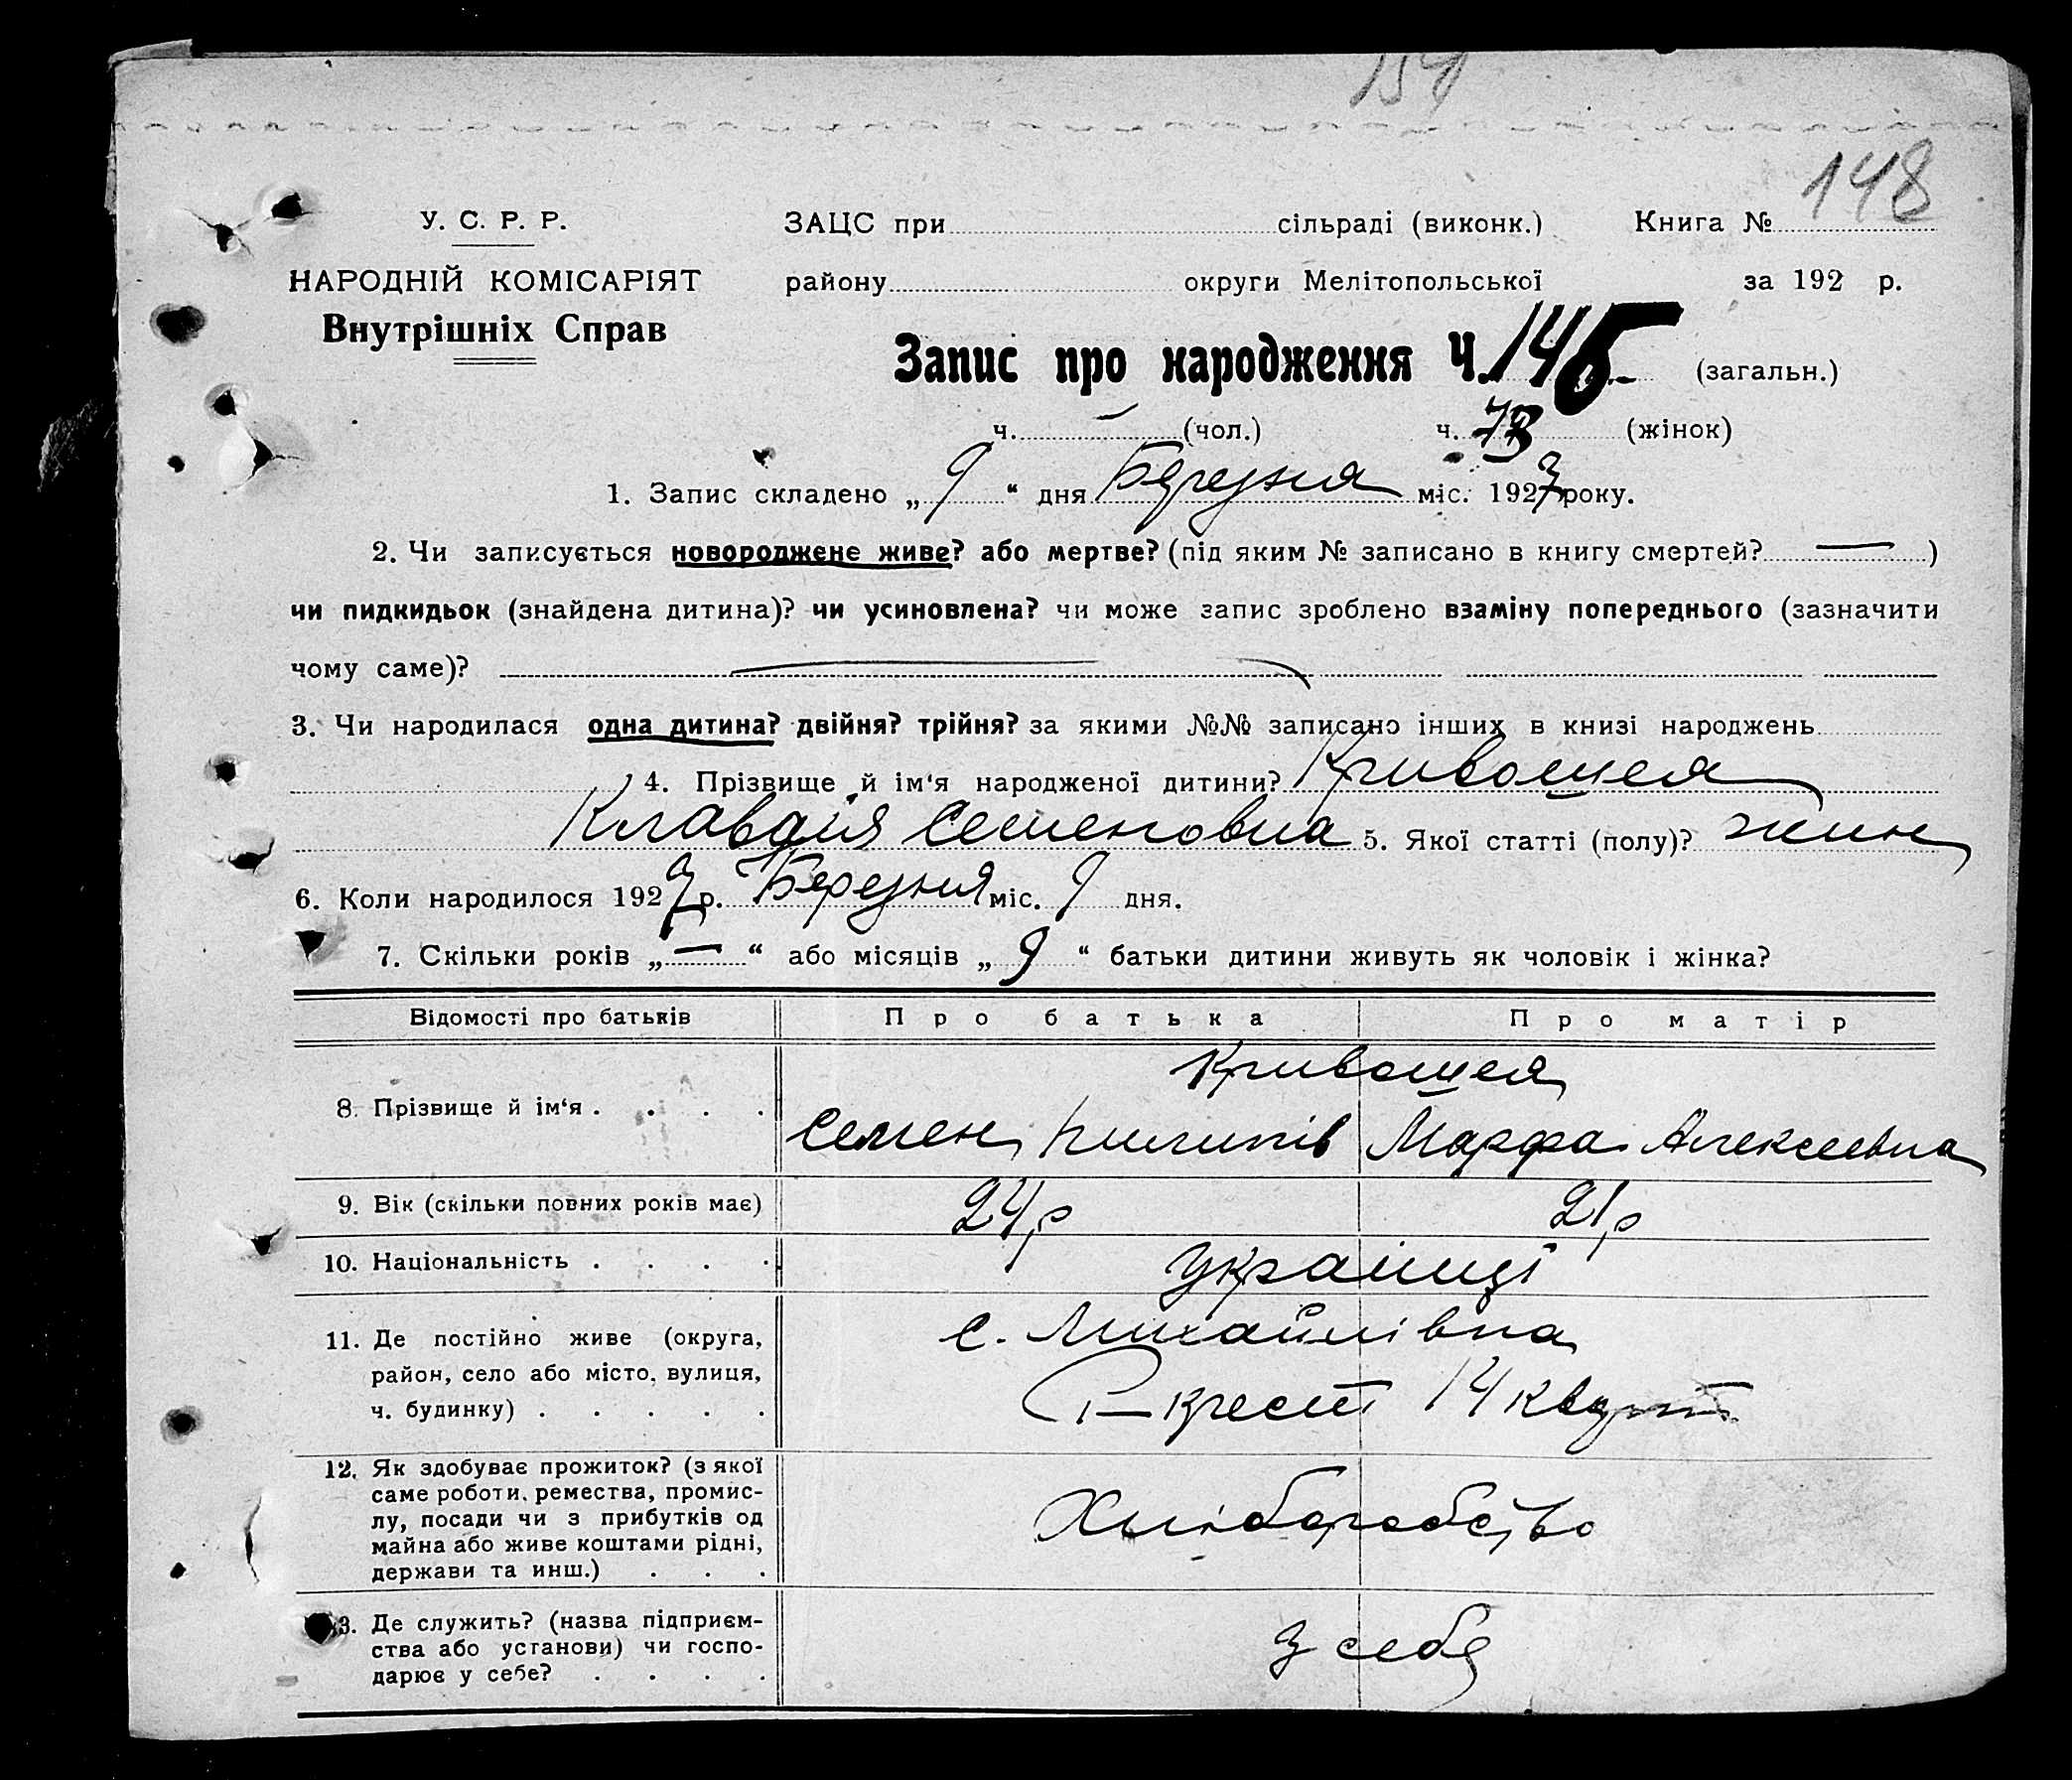 154
148
У. С. Р. Р. ЗАЦС при сільраді (виконк.) Книга №
НАРОДНІЙ КОМІСАРІЯТ району округи Мелітопольської за 192 р.
Внутрішніх Справ
Запис про народження Ч. 145 (загальн.)
ч. — (чол.) ч. 73 (жінок)
1. Запис складено „ 9 “ дня Березня міс. 1927 року.
2. Чи записується новороджене живе? або мертве? (під яким № записано в книгу смертей? — )
чи пидкидьок (знайдена дитина)? чи усиновлена? чи може запис зроблено взаміну попереднього (зазначити
чому саме)? —
3. Чи народилася одна дитина? двійня? трійня? за якими №№ записано інших в книзі народжень
4. Прізвище й ім‘я народженої дитини? Кривошея
Клавдія Семеновна 5. Якої статті (полу)? жин
6. Коли народилося 1927 р. Березня міс. 9 дня.
7. Скільки років „ — “ або місяців „ 9 “ батьки дитини живуть як чоловік і жінка?
Відомості про батьків Про батька Про матір
Кривошея
8. Прізвище й ім‘я . . . . Семен Пилипів Марфа Алексеевна
9. Вік (скільки повних років має) 24 р 21 р
10. Національність . . . . Українці
11. Де постійно живе (округа, с. Михайлівка
район, село або місто, вулиця,
ч. будинку) . . . . . Р-крест 14 кварт
12. Як здобуває прожиток? (з якої
саме роботи, ремества, промис-
лу, посади чи з прибутків од Хліборобство
майна або живе коштами рідні,
держави та инш.) . . .
13. Де служить? (назва підприєм-
ства або установи) чи госпо- У себе
дарює у себе? . . . .